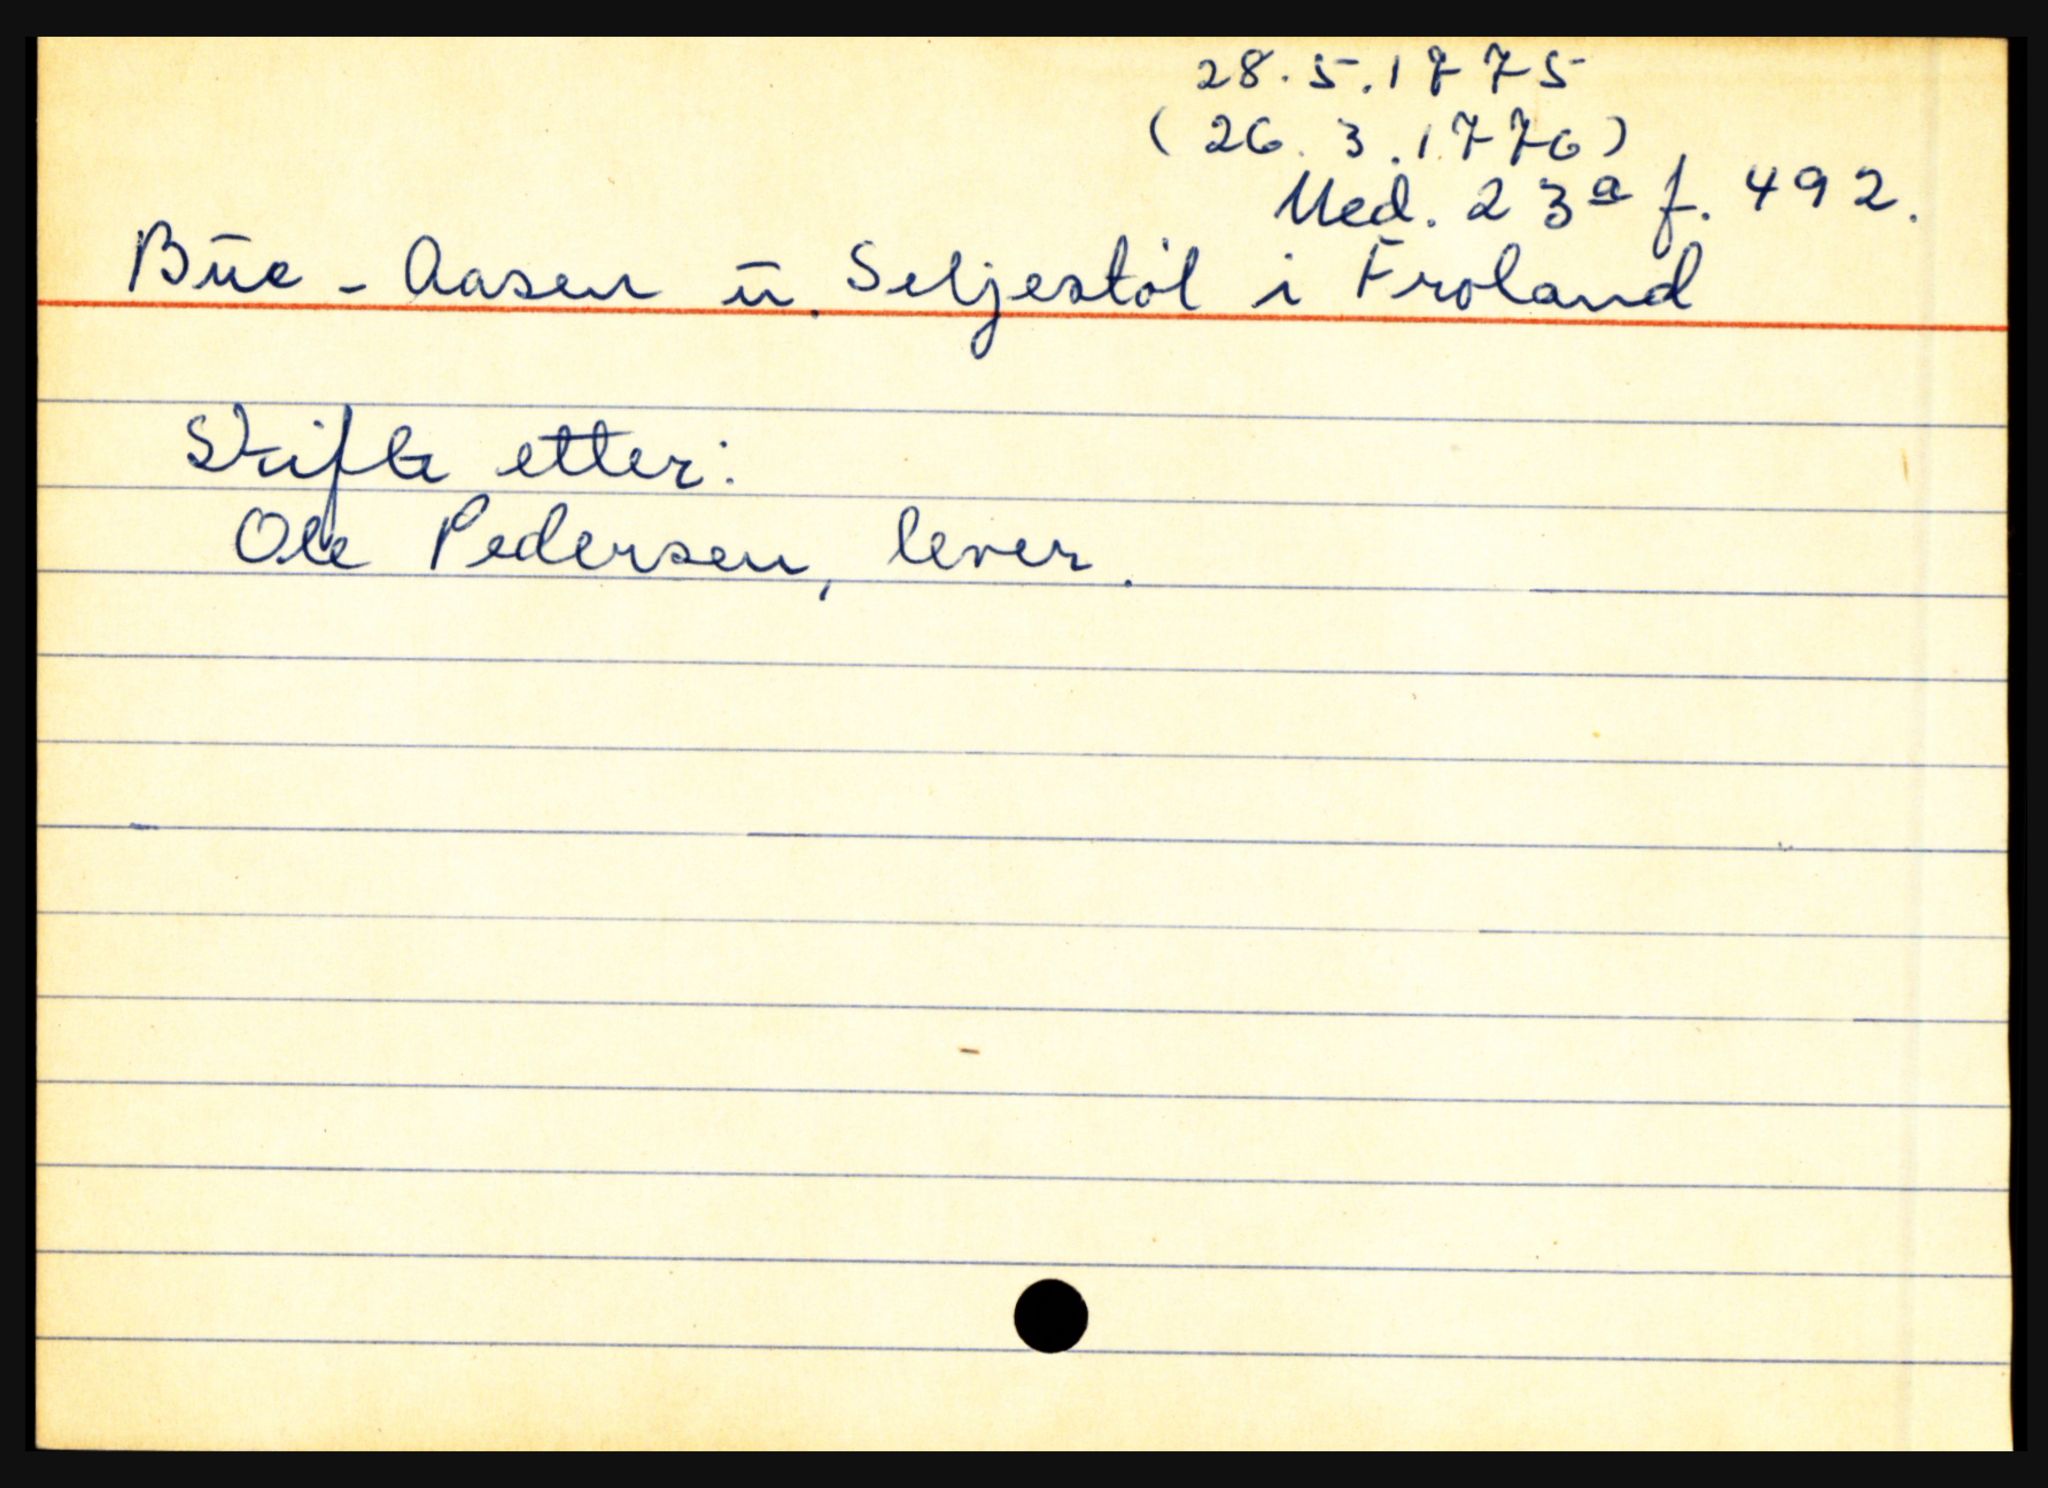 28.5.1775
(26.3.1776)
Ned. 23a f. 492.
Bue - Aasen u. Seljestöl i Froland
Skifte etter:
Ole Pedersen, lever.